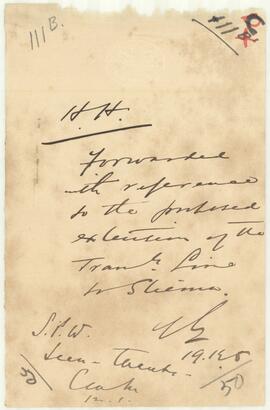 111B.
H.H.
Forwarded
with reference
to the proposed
extension of the
Tram Line
to Sliema.
19.1.
S.P.W.
Seen - Thanks.
50
50